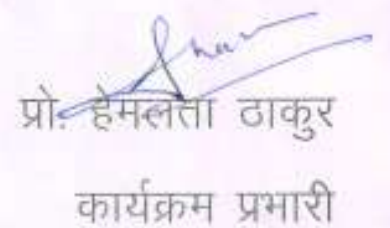 प्रो. हेमलता ठाकुर
कार्यक्रम प्रभारी